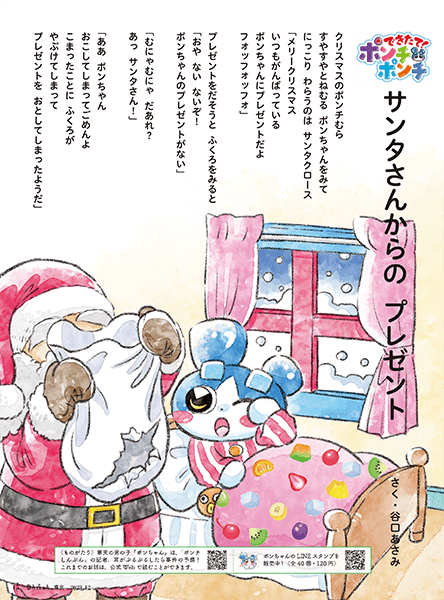 できたて!
ポンチ&ポンチ
サンタさんからの プレゼント
さく・谷口あさみ
クリスマスのポンチむら
すやすやとねむる ポンちゃんをみて
にっこり わらうのは サンタクロース
「メリークリスマス
いつもがんばっている
ポンちゃんにプレゼントだよ
フォッフォッフォ」
プレゼントをだそうと ふくろをみると
「おや ない ないぞ!
ポンちゃんのプレゼントがない」
「むにゃむにゃ だあれ?
あっ サンタさん!」
「ああ ポンちゃん
おこしてしまってごめんよ
こまったことに ふくろが
やぶけてしまって
プレゼントを おとしてしまったようだ」
《ものがたり》寒天の男の子「ポンちゃん」は、「ポンチ
しんぶん」の記者。耳がぷるぷるしたら事件の予感!
これまでのお話は、公式Webで読むことができます。
ポンちゃんのLINEスタンプを
販売中!（全40個・120円）